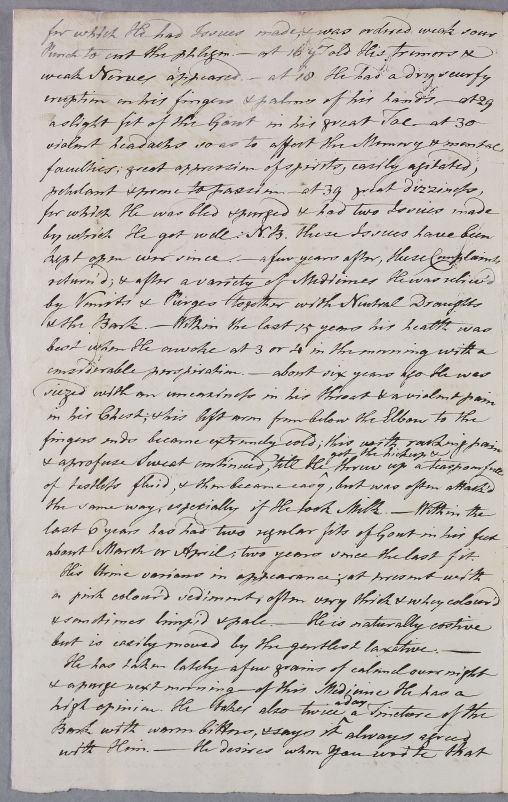 for which He had Issues made & was ordered weak sour
Punch to cut the phlegm. – at 16 yrs old His tremors &
weak Nerves appeared. – at 18 He had a dry scurfy
eruption on his fingers & palms of his hands – at 29
a slight fit of the Gout in his great Toe – at 30
violent headachs so as to affect the Memory & mental
faculties; great oppression of spirits, easily agitated,
petulant & prone to passion – at 39 great dizziness,
for which He was bled & purged & had two Issues made
by which He got well: N.B. these Issues have been
kept open ever since. – a few years after, these Complaints
return'd; & after a variety of Medicines He was reliev'd
by Vomits & Purges together with Neutral Draughts
& the Bark. – Within the last 15 years his health was
best when He awoke at 3 or 4 in the morning with a
considerable perspiration. – about six years ago He was
siezed with an uneasiness in his throat & a violent pain
in his Chest; & his left arm from below the Elbow to the
fingers ends became extremely cold; this with racking pain
& a profuse Sweat continued, 'till He got the hickup & threw up a teaspoon full
of tasteless fluid, & then became easy, but was often attack'd
the same way, especially if He took Milk. – Within the
last 6 years has had two regular fits of Gout in his feet
about March or April; two years since the last fit.
His Urine various in appearance; at present with
a pink colour'd sediment, often very thick & whey colour'd
& sometimes limpid & pale. – He is naturally costive
but is easily moved by the gentlest laxative. –
He has taken lately a few grains of calomel over night
& a purge next morning – of this Medicine He has a
high opinion. He takes also twice a day a Tincture of the
Bark with warm bitters, & says it always agreed
with Him. – He desires when You write that